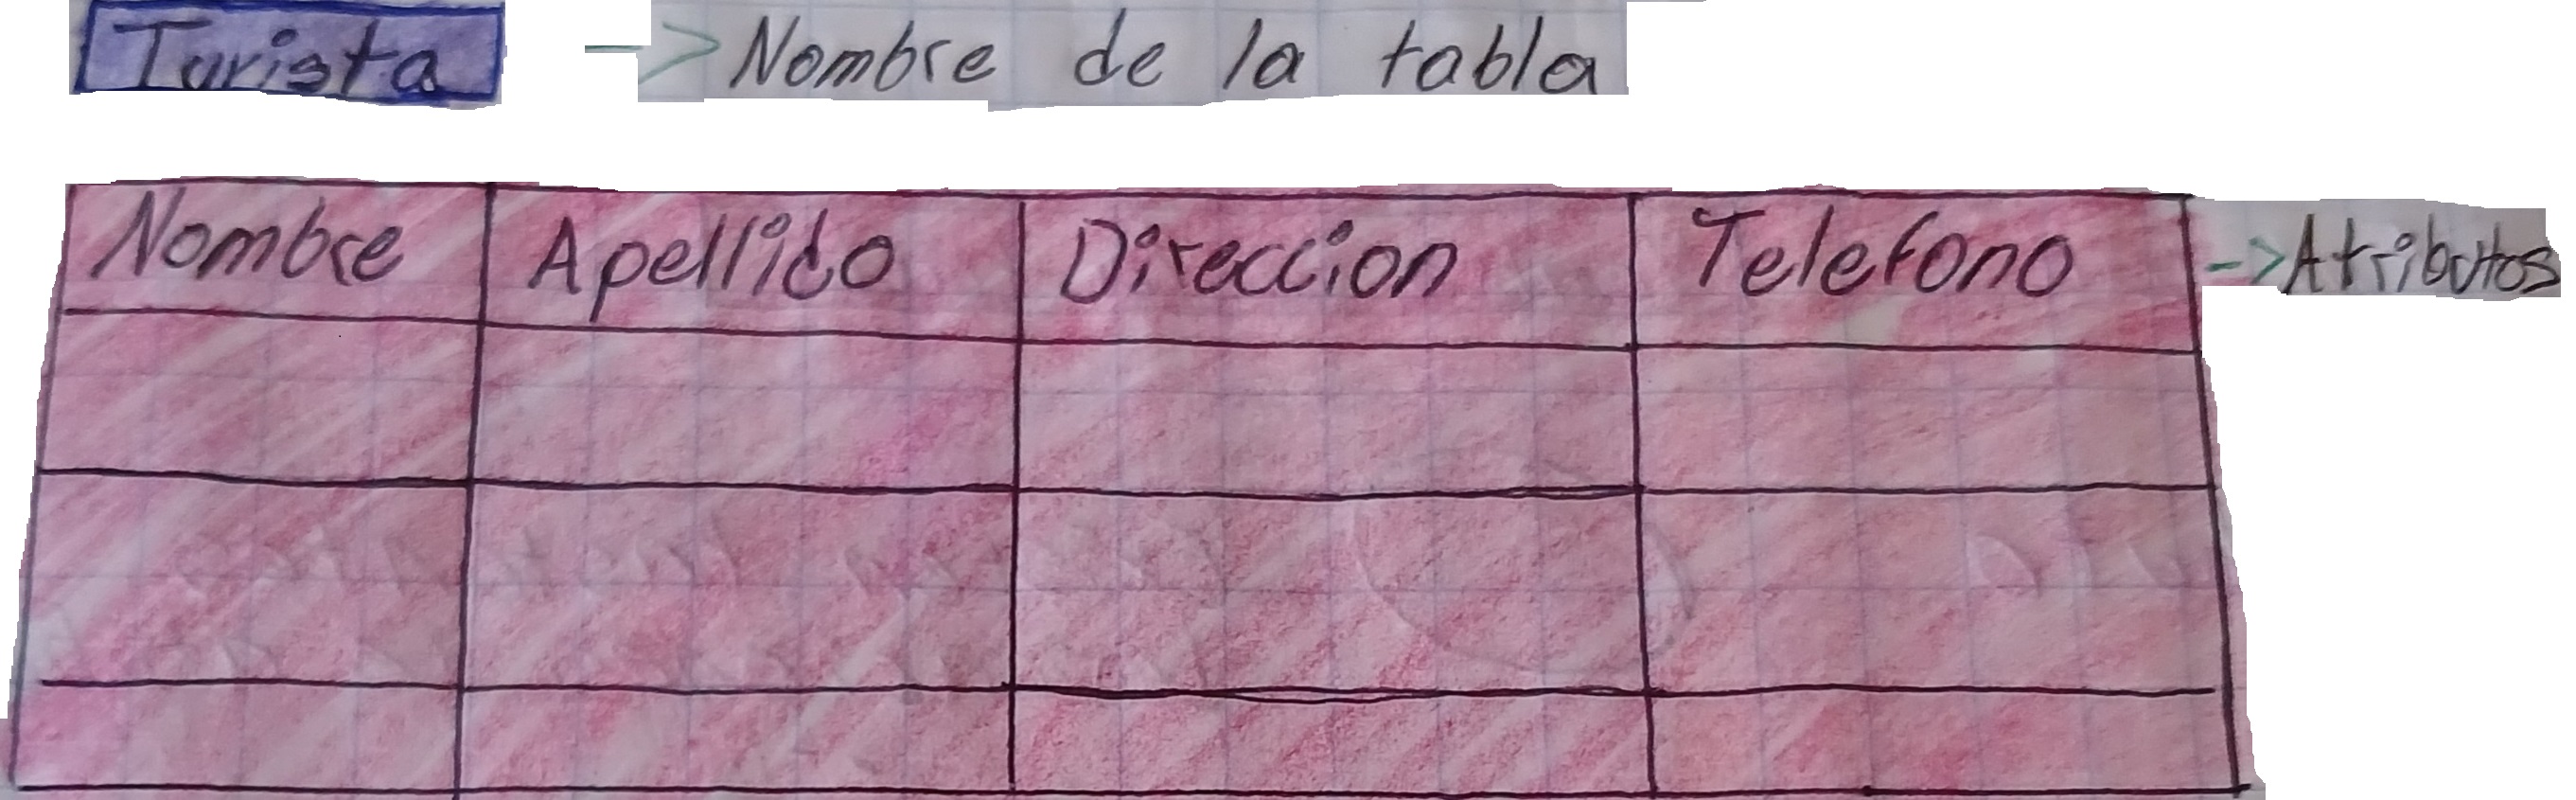 Turista -> Nombre de la tabla
Nombre Apellido Direccion Telefono -> Atributos